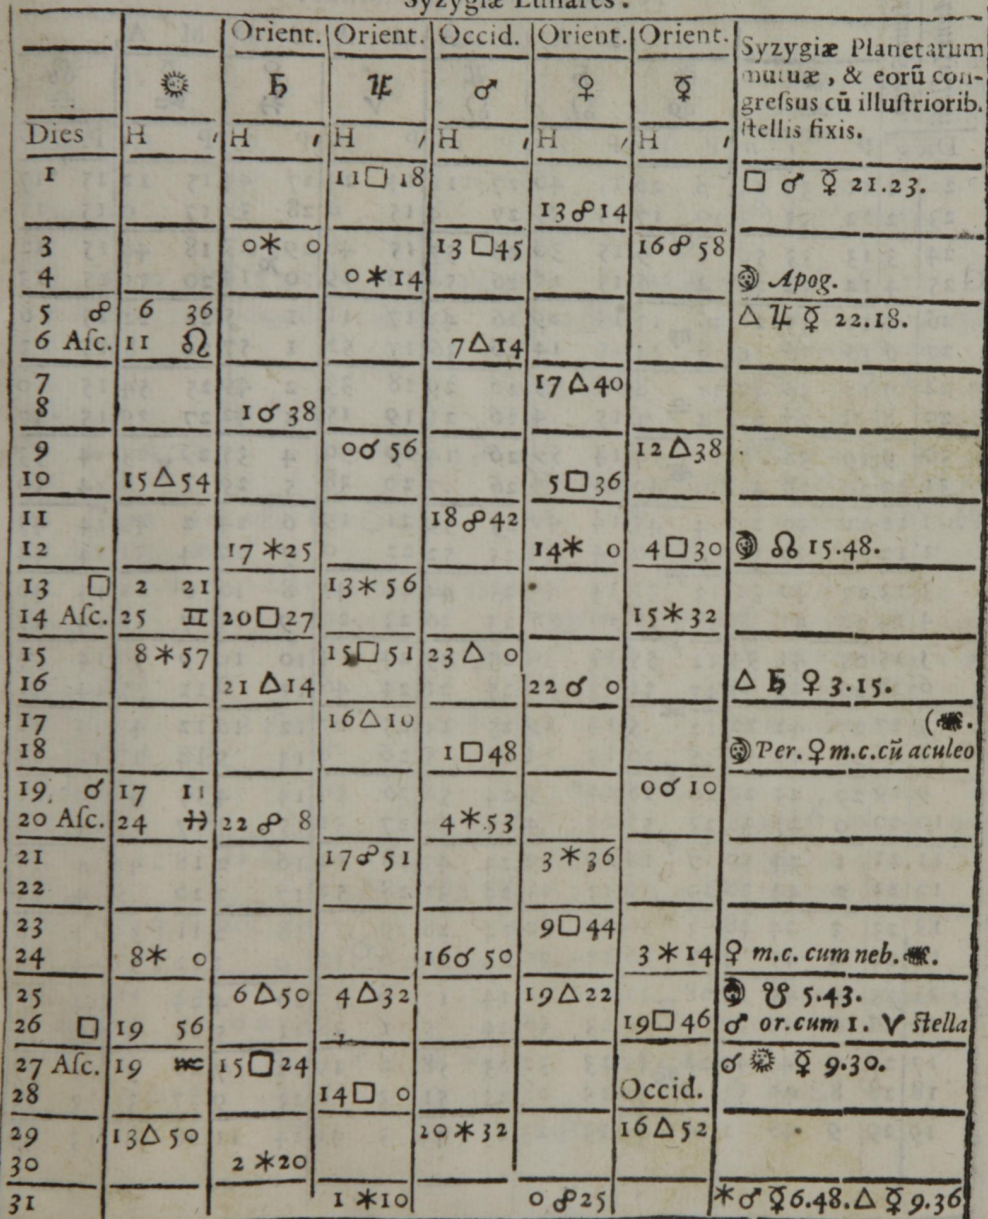 Syzygiæ Lunares.
Orient. Orient. Occid. Orient. Orient. Syzygiæ Planetarum
☉ ♄ ♃ ♂ ♀ ☿ mutuæ, & eorũ con-
greſsus cũ illuſtriorib.
Dies H ′ H ′ H ′ H ′ H ′ H ′ ſtellis fixis.
1 11□18 □ ♂ ☿ 21.23.
13☍14
3 0✶ 0 13□45 16☍58
4 0✶14 ☽ Apog.
5 ☍ 6 36 △ ♃ ☿ 22.18.
6 Aſc. 11 ♌ 7△14
7 17△40
8 1☌38
9 0☌56 12△38
10 15△54 5□36
11 18☍42
12 17✶25 14✶ 0 4□30 ☽ ☊ 15.48.
13 □ 2 21 13✶56
14 Aſc. 25 ♊ 20□27 15✶32
15 8✶57 15□51 23△ 0
16 21△14 22☌ 0 △ ♄ ♀ 3.15.
17 16△10 (♏.
18 1□48 ☽ Per. ♀ m.c.cũ aculeo
19. ☌ 17 11 0☌10
20 Aſc. 24 ♓ 22☍ 8 4✶53
21 17☍51 3✶36
22
23 9□44
24 8✶ 0 16☌50 3✶14 ♀ m.c. cum neb. ♐.
25 6△50 4△32 19△22 ☽ ☋ 5.43.
26 □ 19 56 19□46 ♂ or.cum 1. ♈ ſtella
27 Aſc. 19 ♒ 15□24 ☌ ☉ ☿ 9.30.
28 14□ 0 Occid.
29 13△50 20✶32 16△52
30 2✶20
31 1✶10 0☍25 ✶♂ ☿6.48.△ ☿9.36